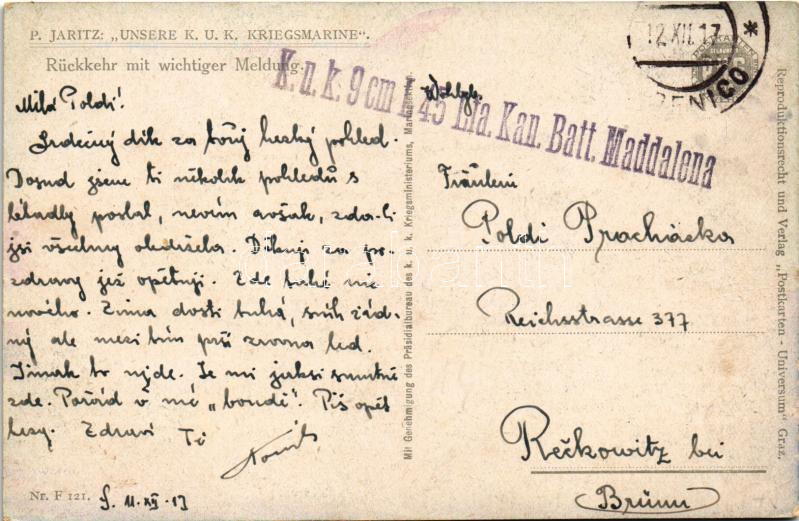 P. JARITZ: „UNSERE K. U. K. KRIEGSMARINE“.
Rückkehr mit wichtiger Meldung.
K. u. k. 9 cm L 45 Lfa. Kan. Batt. Maddalena
12 XII. 17
Milá Poldi!
Srdečný dík za tvůj hezký pohled.
Dosud jsme ti několik pohledů s
letadly poslal, nevím avšak, zda-li
jsi všechny obdržela. Děkuji za po-
zdravy jež opětuji. Zde
nového. Zima dosti tuhá, sníh žád-
ný ale mezi tím zrovna led.
Jinak to ujde. Je mi jaksi smutně
zde. Pořád v mé „boudě“. Piš opět
brzy. Zdraví Tě
S. 11-XII-17
Nr. F 121.
Mit Genehmigung des Präsidialbureau des k. u. k. Kriegsministeriums, Marinesektion.
Wohlgb.
Fräulein
Poldi Procházka
Reichsstrasse 377
Rečkowitz bei
Brünn
Reproduktionsrecht und Verlag „Postkarten - Universum“ Graz.